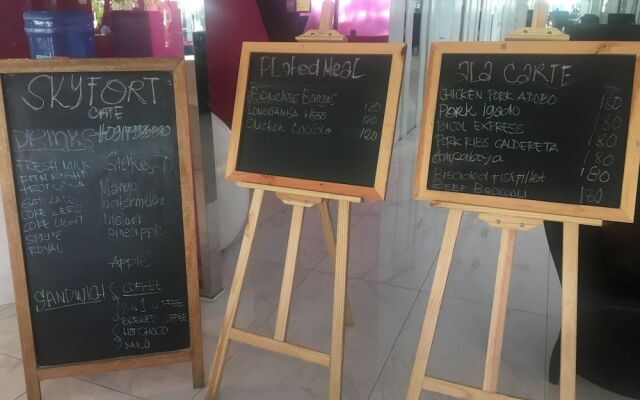 SKYFORT
CAFE
DRINKS
FRESH MILK
COKE ZERO
COKE LIGHT
SPRITE
ROYAL
SANDWICH
Shakes
Mango
Watermelon
Melon
Pineapple
Apple
COFFEE
3 in 1 COFFEE
BREWED COFFEE
HOT CHOCO
MILO
PLated MeaL
Boneless Bangus 120
LONGGANISA W/EGG 120
Chicken 120
aLa CaRTE
CHICKEN PORK ADOBO 180
Pork Igado 180
BICOL EXPRESS 180
PORK RIBS CALDERETA 180
Ampalaya 180
Breaded Fish Fillet 180
BEEF BROCOLI 180